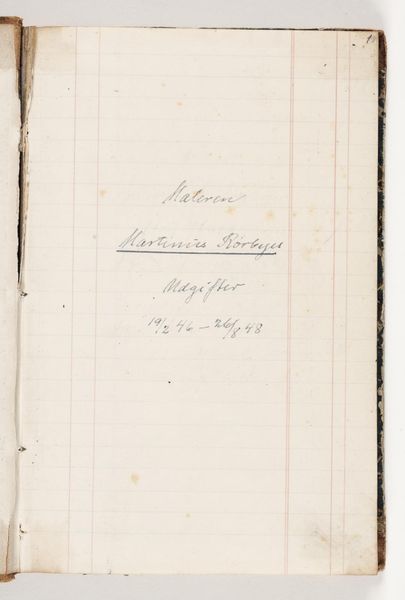 Maleren
Martinus Rørbyes
Udgifter
19/2 46 – 26/8 48